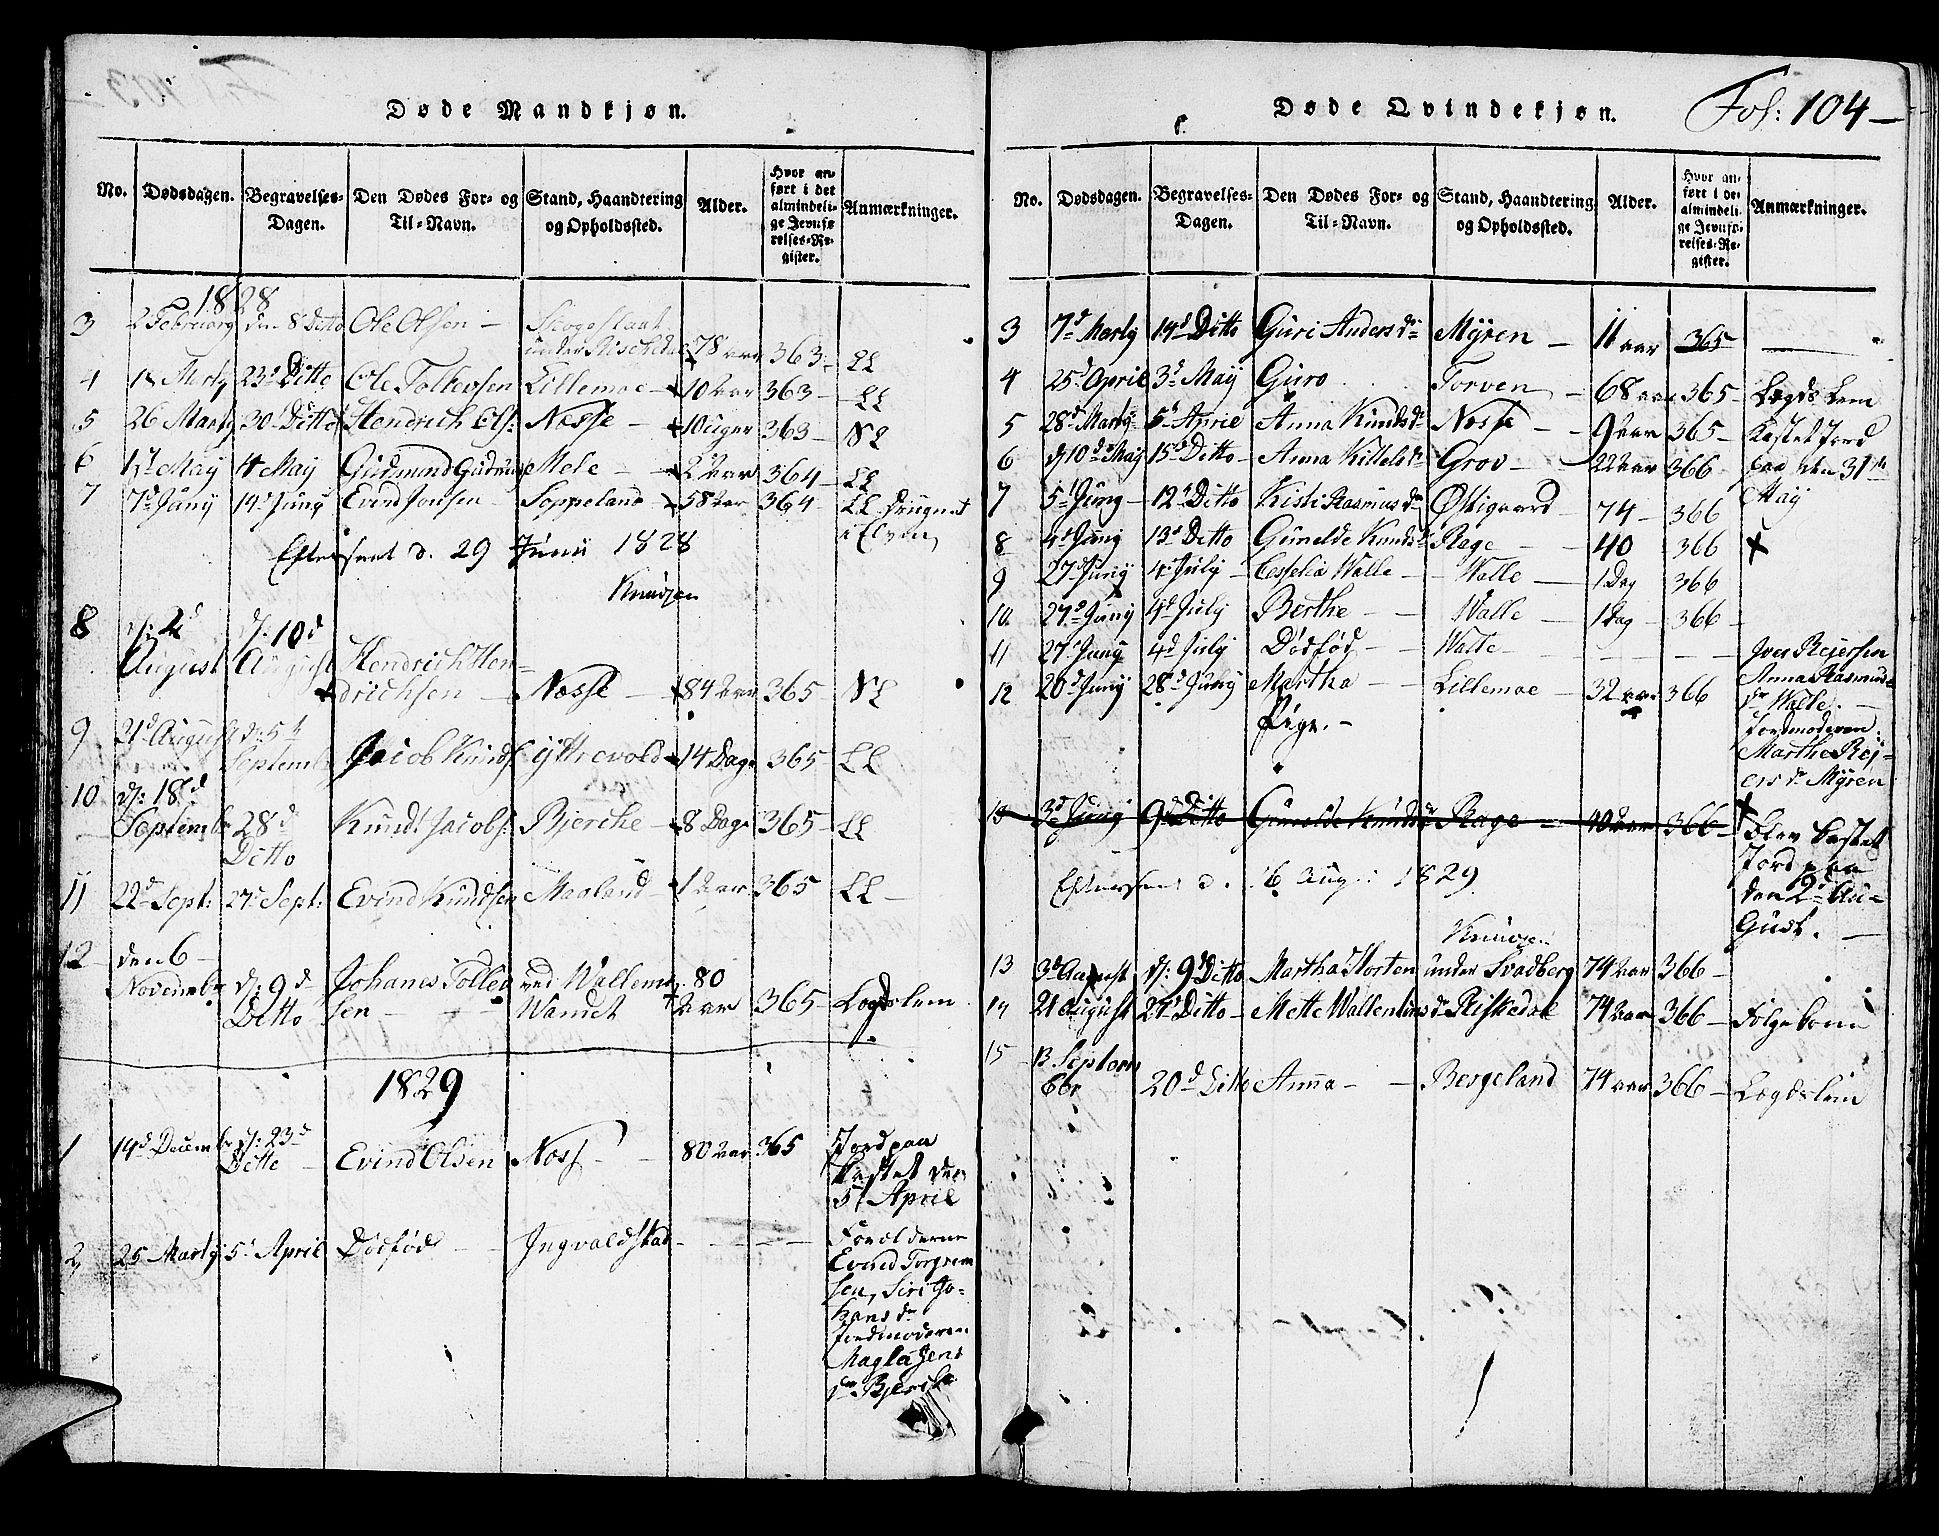 Døde Mandkjøn.
No. Dødsdagen. Begravelses-Dagen. Den Dødes For- og Til-Navn. Stand, Haandtering og Opholdssted. Alder. Hvor anført i det almindelige Jevnførelses-Register. Anmærkninger.
1828
3 2 Februarÿ den 8 Ditto Ole Olsen –
under Rischedal 78 aar 363 LL
4 Martÿ 23d Ditto Ole Tolkevsen Lillemoe – 10 aar 363 – LL
5 26 Martÿ 30 Ditto Hendrich Ols: Næsse – 10 uger 363 – NL
6 1st Maÿ 4 Maÿ Gudmund Mele – 2 aar 364 – LL
7 7d Junÿ 14d Junÿ Evind Jonsen Soppeland 58 aar 364 – LL Drugnet
i Elven
Efterseet d. 29 Junii 1828
Knudsen
8 d: 2d d: 10d
August August Hendrich Hen-
drichsen – Næsse – 84 aar 365 NL
9 21d August d: 5t
Septembr Jacob Knuds: Ÿttrevold 14 Dage 365 LL
10 d: 18d
Septembr 28d Knud Jacobs: Bjerche – 8 Dage 365 – LL
Ditto
11 22d Sept: 27d Sept: Evind Knudsen Maaland – 1 aar 365 LL –
12 den 6
Novembr d: 9d Johanes Tollev ved Wallem 80
Ditto sen – Wandet aar 365 – Lægdslem
1829
1 14d Decemb d: 23d
Ditto Evind Olsen Næss – 80 aar 365 Jord paa
kastet den
5t April
2 25 Martÿ 5t April Dødfød – Ingvaldstad – Forælderne
Evind Torgrem
sen, Siri Jo-
hans dr
Jordmoderen
Magla Jens
dr Bjerche
Døde Qvindekjøn. Fol: 104 –
No. Dødsdagen. Begravelses-Dagen. Den Dødes For- og Til-Navn. Stand, Haandtering og Opholdssted. Alder. Hvor anført i det almindelige Jevnførelses-Register. Anmærkninger.
3 7d Martÿ 14d Ditto Guri Anders dr Mÿren – 11 aar 365
4 25d April 3d Maÿ Guro Torven – 68 aar 365 – Lægds Lem
5 28d Martÿ 5t April Anna Knuds dr Næsse – 9 aar 365 – Kastet Jord
6 d: 10d Maÿ 15d Ditto – Anna Kittels dr Grov – 22 aar 366 paa den 31te
Maÿ
7 5t Junÿ – 12t Ditto Kisti Rasmus dr Østigaard – 74 – 366
8 4d Junÿ 13d Ditto Gunelde Knuds dr Rage – 40 366 ×
9 27 Junÿ 4d Julÿ – Cesselia Walle – Walle – 1 Dag 366
10 27d Junÿ 4d Julÿ Berthe – Walle – 1 Dag – 366 –
11 27 Junÿ 4d Julÿ Dødfød – Walle – Iver Rejersen
Anna Rasmus
dr Walle. –
Jordmoderen:
Martha Rej-
ers dr Mÿren
12 20d Junÿ 28d Junÿ Martha – Lillemoe – 32 aar 366
Pige. –
13 3d Junÿ 9d Ditto Gunelde Knuds dr Rage – 40 aar 366 –
× blev kastet
Jord paa
den 2d Au-
gust. –
Efterseet d. 6 Aug: 1829
Knudsen
13 3d August d: 9d Ditto Martha Horten under Svadberg 74 aar 366 –
14 21 August 27d Ditto – Mette Wallentins dr Riskedal 74 aar 366 – Følgekone
15 13 Septem
ber 20d Ditto Anna – Bergeland 74 aar 366 – Lægdslem